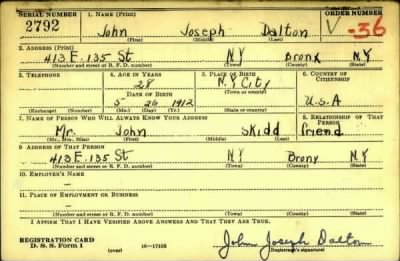 SERIAL NUMBER 1. NAME (Print) ORDER NUMBER
2792 John Joseph Dalton V-36
(First) (Middle) (Last)
2. ADDRESS (Print)
413 E. 135 St N.Y Bronx N.Y
(Number and street or R. F. D. number) (Town) (County) (State)
3. TELEPHONE 4. AGE IN YEARS 5. PLACE OF BIRTH 6. COUNTRY OF CITIZENSHIP
28 N.Y. City
DATE OF BIRTH (Town or county)
5 26 1912 U.S.A
(Exchange) (Number) (Mo.) (Day) (Yr.) (State or country)
7. NAME OF PERSON WHO WILL ALWAYS KNOW YOUR ADDRESS 8. RELATIONSHIP OF THAT PERSON
Mr. John Skidd friend
(Mr., Mrs., Miss) (First) (Middle) (Last)
9. ADDRESS OF THAT PERSON
413 E. 135 St N.Y Bronx N.Y
(Number and street or R. F. D. number) (Town) (County) (State)
10. EMPLOYER'S NAME
—
11. PLACE OF EMPLOYMENT OR BUSINESS
—
(Number and street or R. F. D. number) (Town) (County) (State)
I AFFIRM THAT I HAVE VERIFIED ABOVE ANSWERS AND THAT THEY ARE TRUE.
REGISTRATION CARD
D. S. S. FORM 1 (over) 16—17105 John Joseph Dalton
(Registrant's signature)